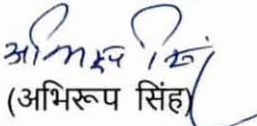 अभिरूप सिंह
(अभिरूप सिंह)